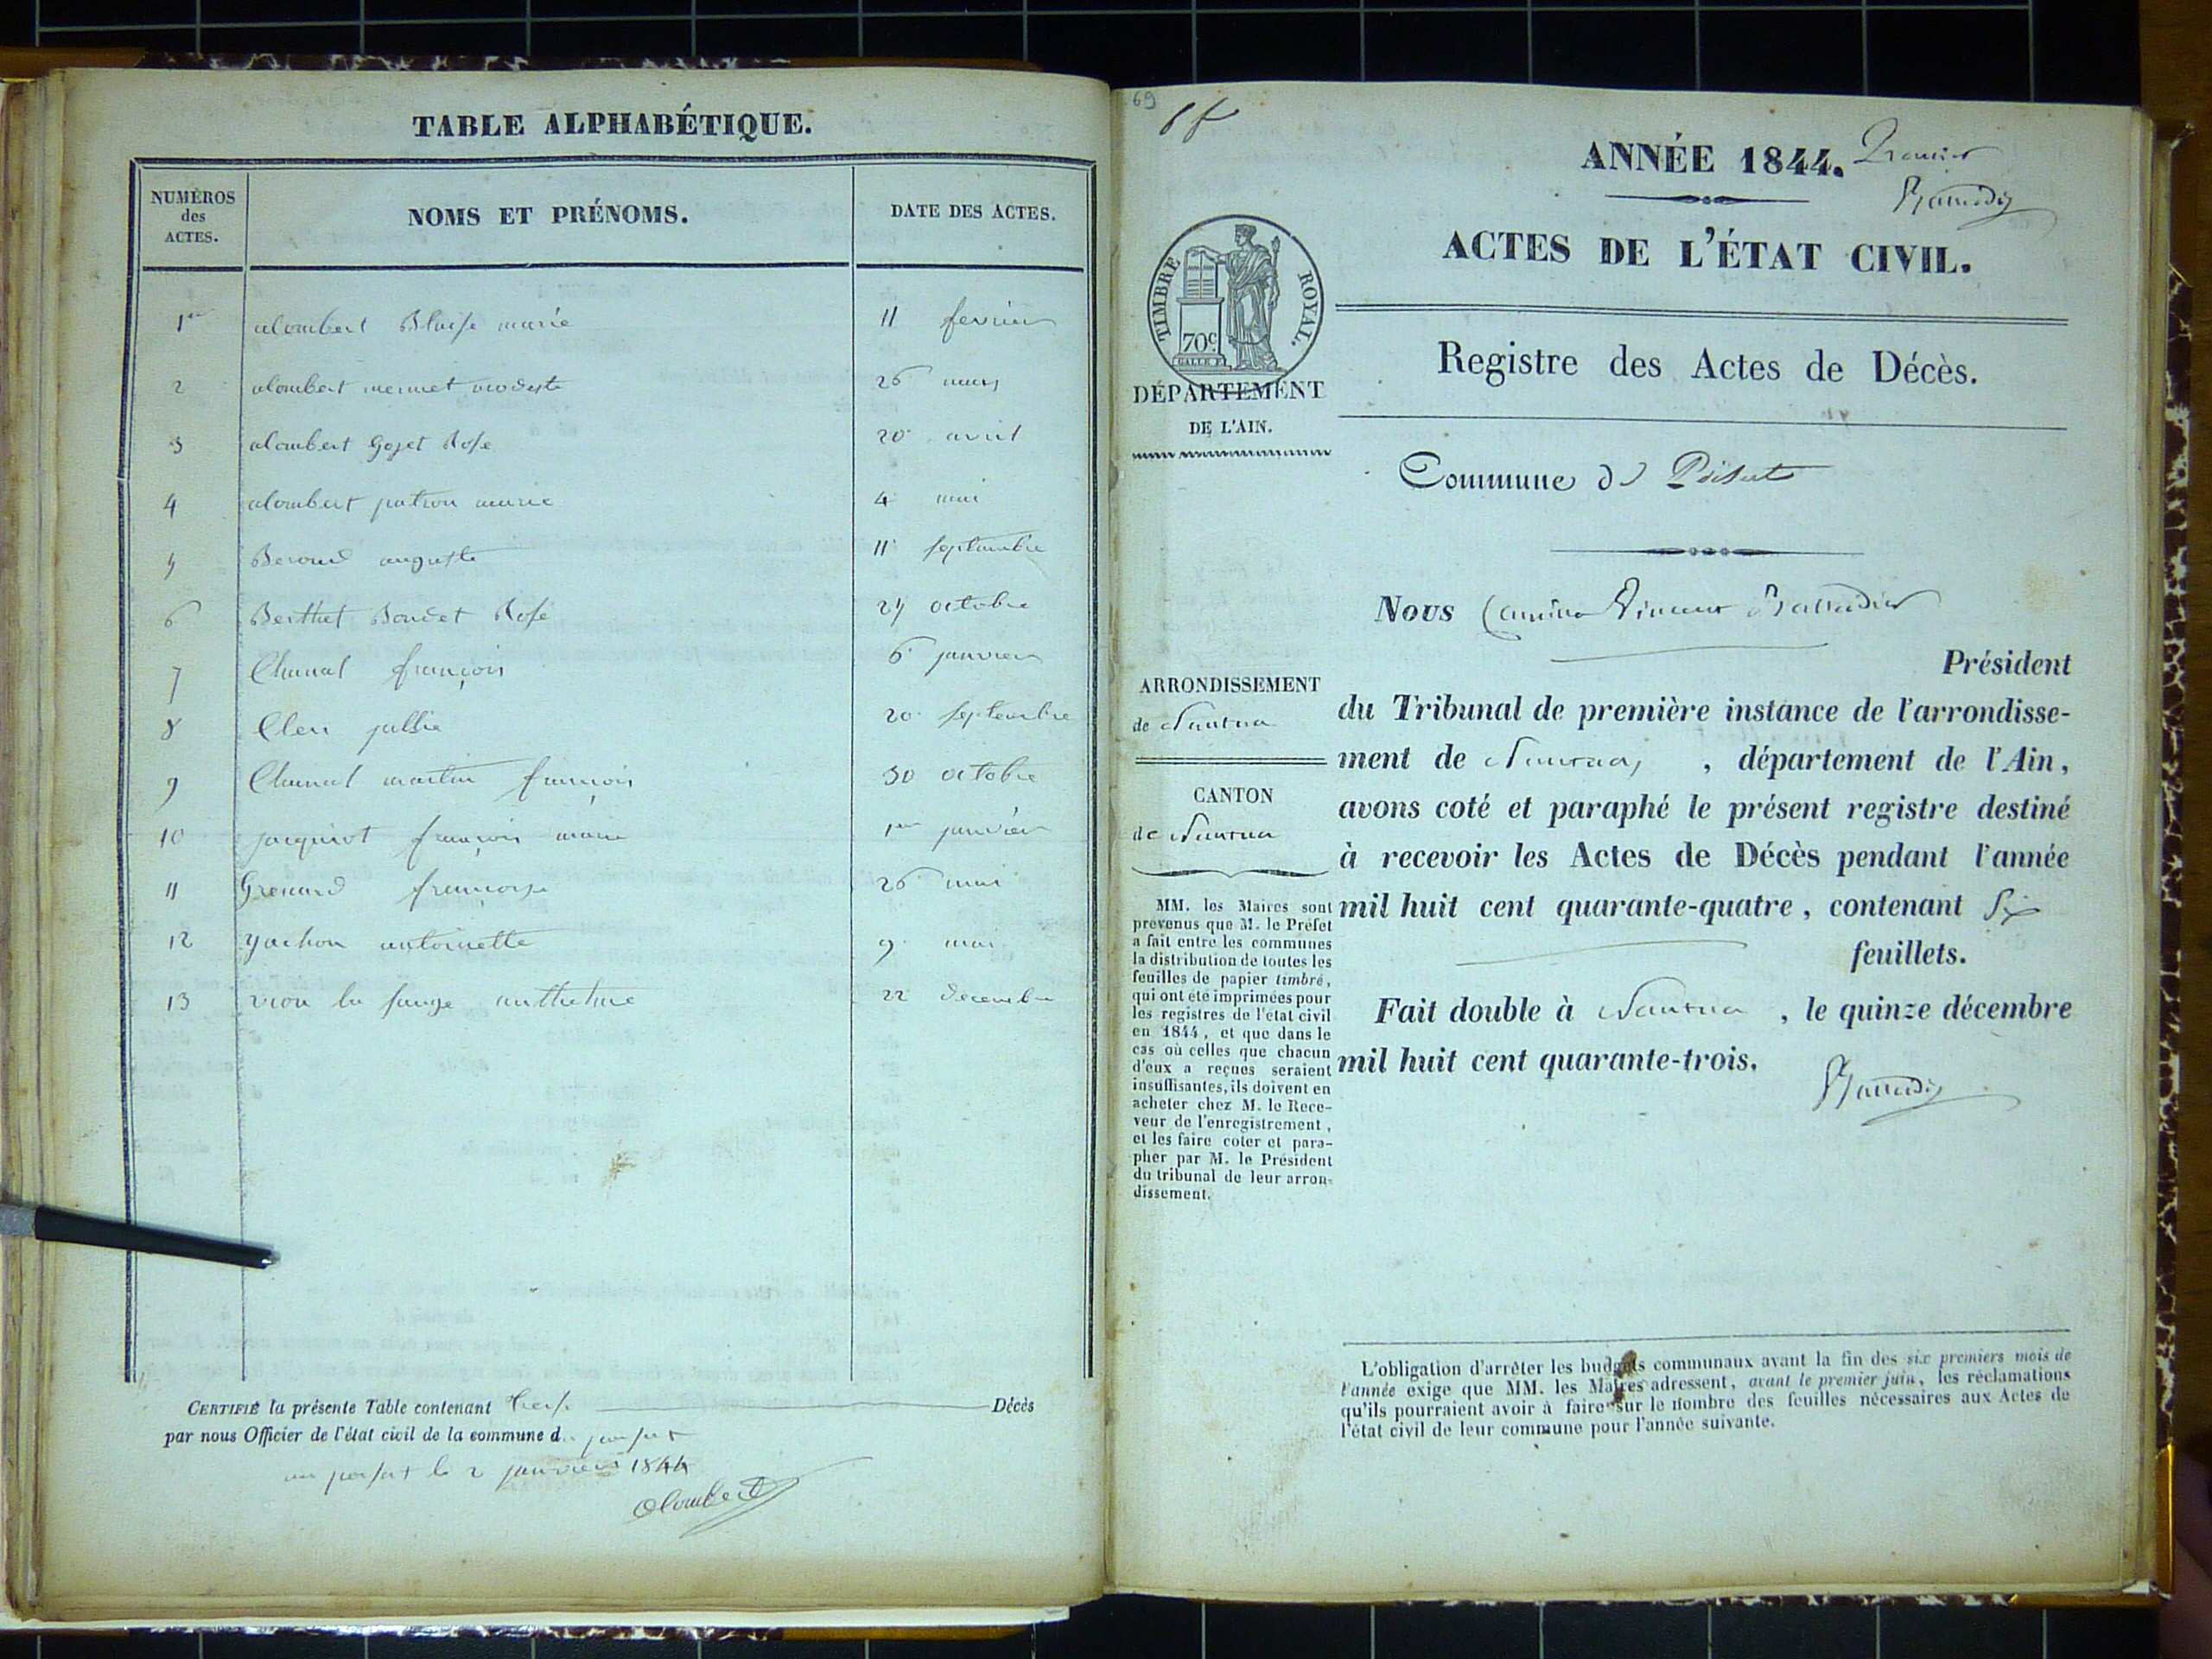 TABLE ALPHABÉTIQUE.
NUMÉROS
des
ACTES.
NOMS ET PRÉNOMS.
DATE DES ACTES.
1er alombert Blaise marie 11 fevrier
2 alombert mermet modeste 26 mars
3 alombert Gojet Rose 20 avril
4 alombert patron marie 4 mai
5 Beroud auguste 11 septembre
6 Berthet Boudet Rose 24 octobre
7 Chanal françois 6 janvier
8 20 septembre
9 Chanal martin françois 30 octobre
10 jacquiot françois marie 1er janvier
11 Grenard françoise 26 mai
12 antoinette 9 mai
13 22 decembre
CERTIFIÉ la présente Table contenant Décès
par nous Officier de l'état civil de la commune d
le 2 janvier 1844
alombert
69
ANNÉE 1844. Premier
ACTES DE L'ÉTAT CIVIL.
TIMBRE ROYAL.
70c
Registre des Actes de Décès.
DÉPARTEMENT
DE L'AIN.
Commune de
Nous Vincent
Président
ARRONDISSEMENT
de Nantua
du Tribunal de première instance de l'arrondisse-
ment de Nantua, , département de l'Ain,
CANTON
de Nantua
avons coté et paraphé le présent registre destiné
à recevoir les Actes de Décès pendant l'année
mil huit cent quarante-quatre, contenant Six
feuillets.
Fait double à Nantua , le quinze décembre
mil huit cent quarante-trois.
MM. les Maires sont
prévenus que M. le Préfet
a fait entre les communes
la distribution de toutes les
feuilles de papier timbré,
qui ont été imprimées pour
les registres de l'état civil
en 1844, et que dans le
cas où celles que chacun
d'eux a reçues seraient
insuffisantes, ils doivent en
acheter chez M. le Rece-
veur de l'enregistrement,
et les faire coter et para-
pher par M. le Président
du tribunal de leur arron-
dissement.
L'obligation d'arrêter les budgets communaux avant la fin des six premiers mois de
l'année exige que MM. les Maires adressent, avant le premier juin, les réclamations
qu'ils pourraient avoir à faire sur le nombre des feuilles nécessaires aux Actes de
l'état civil de leur commune pour l'année suivante.